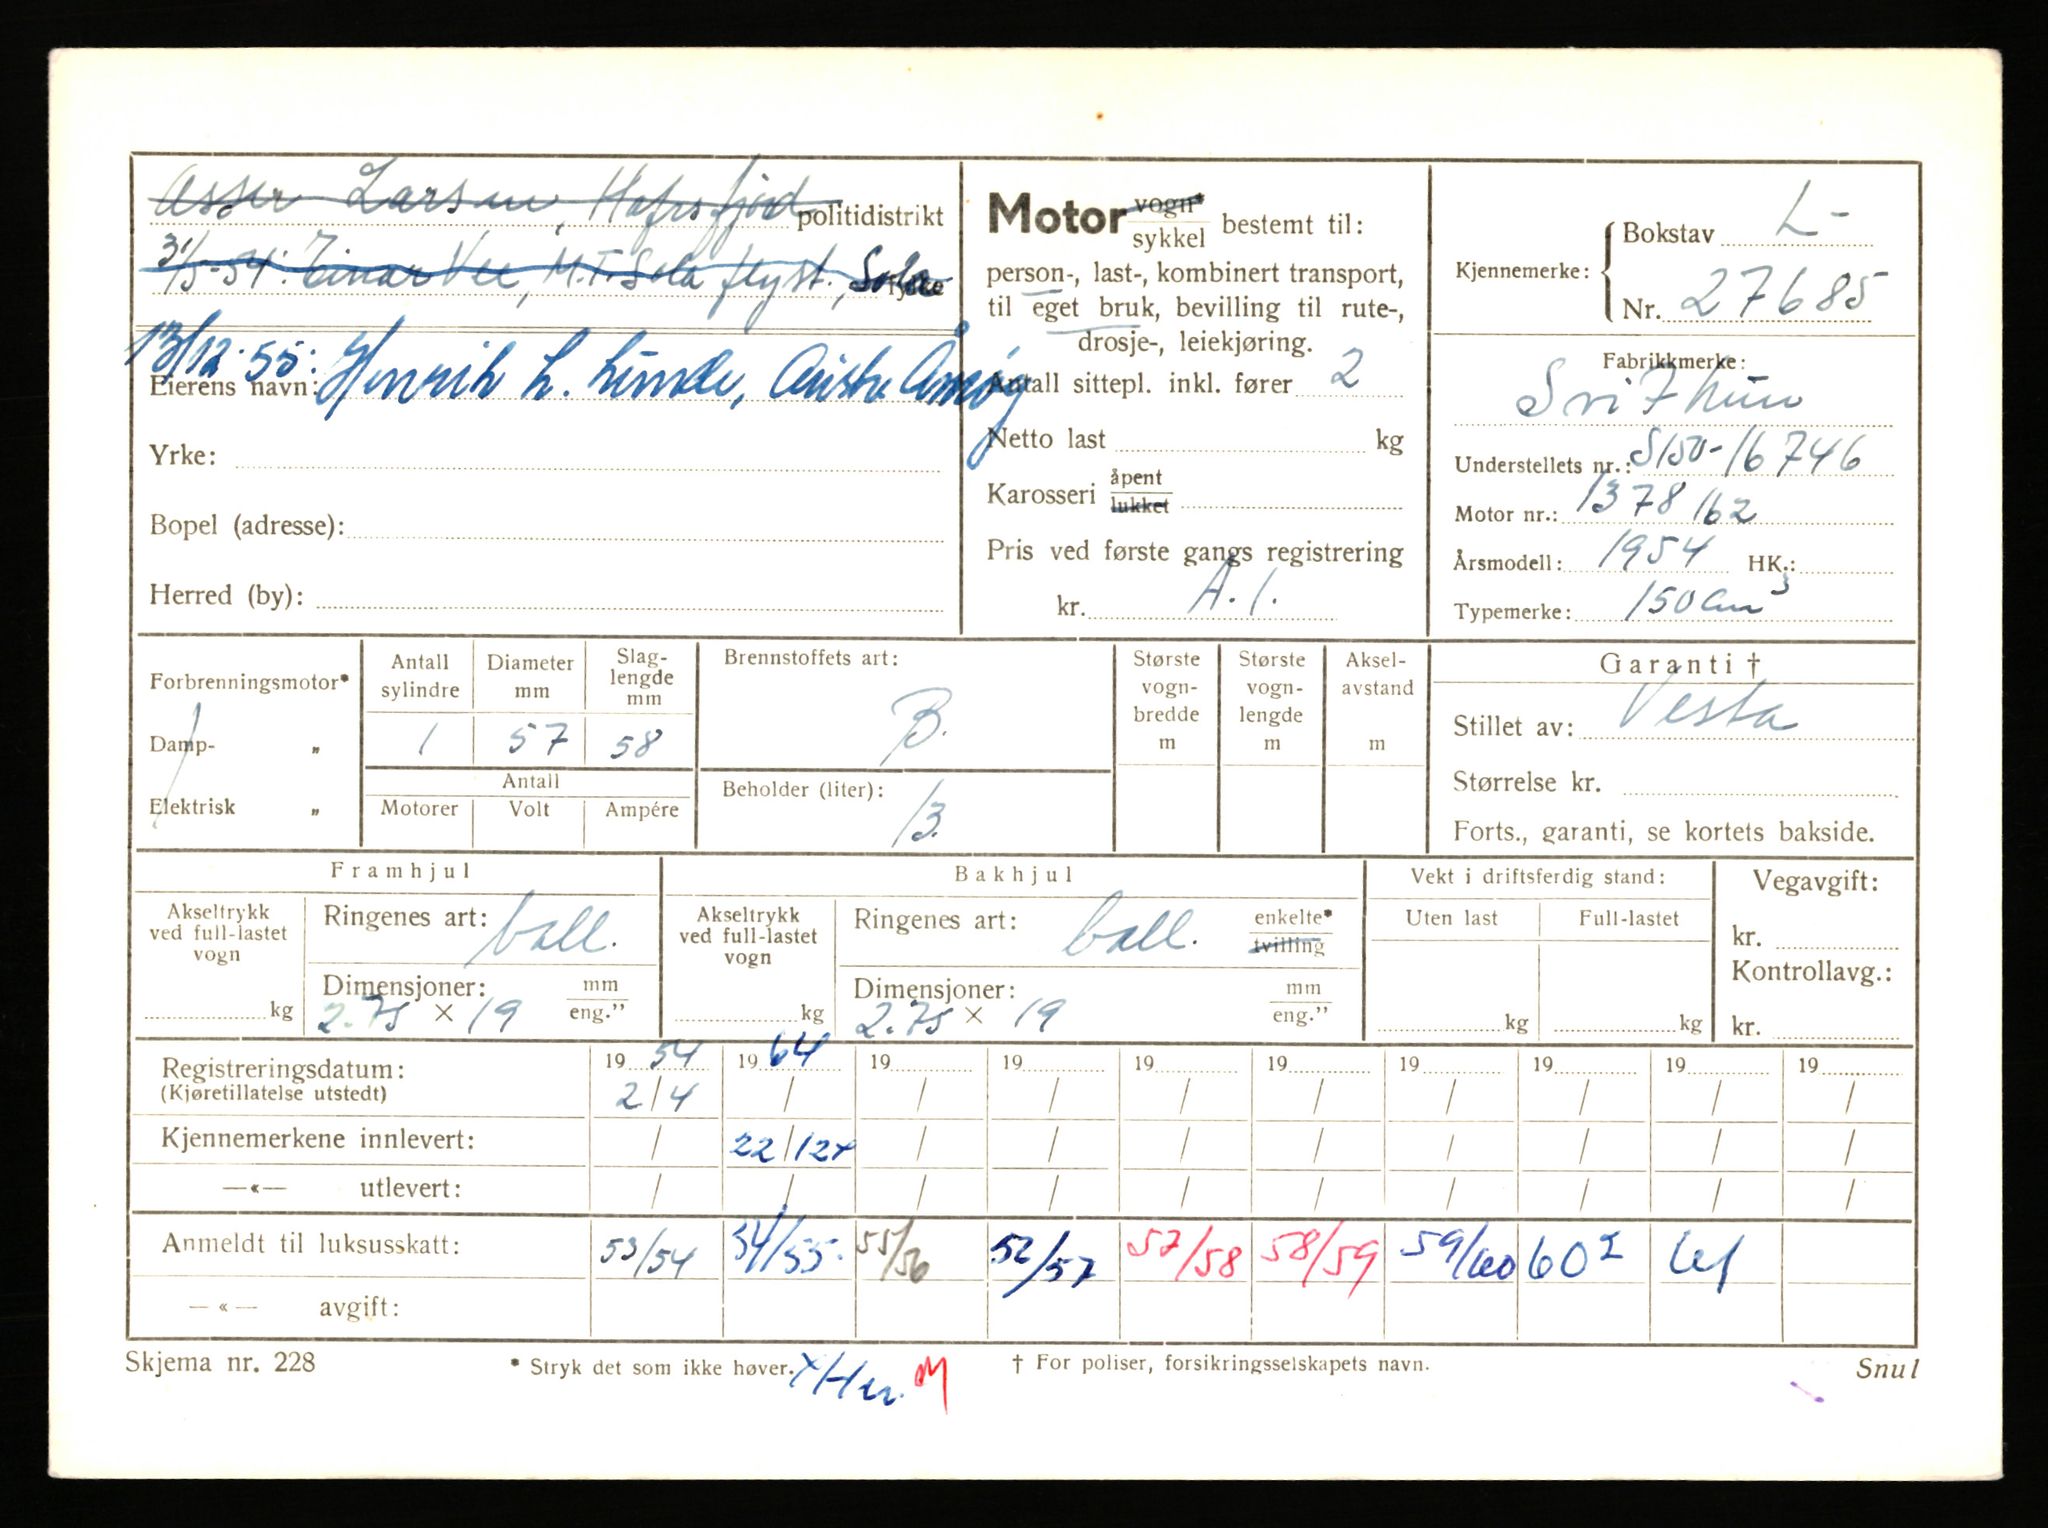 Asser Larsen, Hafrsfjord politidistrikt
31/5-54: Einar Vee, M.T. Sola flyst., Sola
13/12-55:
Eierens navn: Henrik L. Lunde, Austre Åmøy
Yrke:
Bopel (adresse):
Herred (by):
Motor vogn* sykkel bestemt til:
person-, last-, kombinert transport,
til eget bruk, bevilling til rute-,
drosje-, leiekjøring.
Antall sittepl. inkl. fører 2
Netto last kg
Karosseri åpent lukket
Pris ved første gangs registrering
kr. A.1.
Kjennemerke: Bokstav L-
Nr. 27685
Fabrikkmerke:
Svithun
Understellets nr.: S150-16746
Motor nr.: 1378162
Årsmodell: 1954 HK.:
Typemerke: 150 cm³
Forbrenningsmotor*
Damp- „
Elektrisk „
Antall sylindre Diameter mm Slag-lengde mm
1 57 58
Antall
Motorer Volt Ampére
Brennstoffets art:
B.
Beholder (liter):
13.
Største vogn-bredde m
Største vogn-lengde m
Aksel-avstand m
Garanti †
Stillet av: Vesta
Størrelse kr.
Forts., garanti, se kortets bakside.
Framhjul
Akseltrykk ved full-lastet vogn
kg
Ringenes art: ball.
Dimensjoner: mm eng."
2.75 × 19
Bakhjul
Akseltrykk ved full-lastet vogn
kg
Ringenes art: ball. enkelte* tvilling
Dimensjoner: mm eng."
2.75 × 19
Vekt i driftsferdig stand:
Uten last Full-lastet
kg kg
Vegavgift:
kr.
Kontrollavg.:
kr.
Registreringsdatum: 19 54 19 64 19 19 19 19 19 19 19 19
(Kjøretillatelse utstedt) 2/4 / / / / / / / / /
Kjennemerkene innlevert: / 22/12x / / / / / / / /
—«— utlevert: / / / / / / / / / /
Anmeldt til luksusskatt: 53/54 54/55. 55/56 52/57 57/58 58/59 59/60 60² 61
—«— avgift:
Skjema nr. 228
* Stryk det som ikke høver.
† For poliser, forsikringsselskapets navn.
Snul